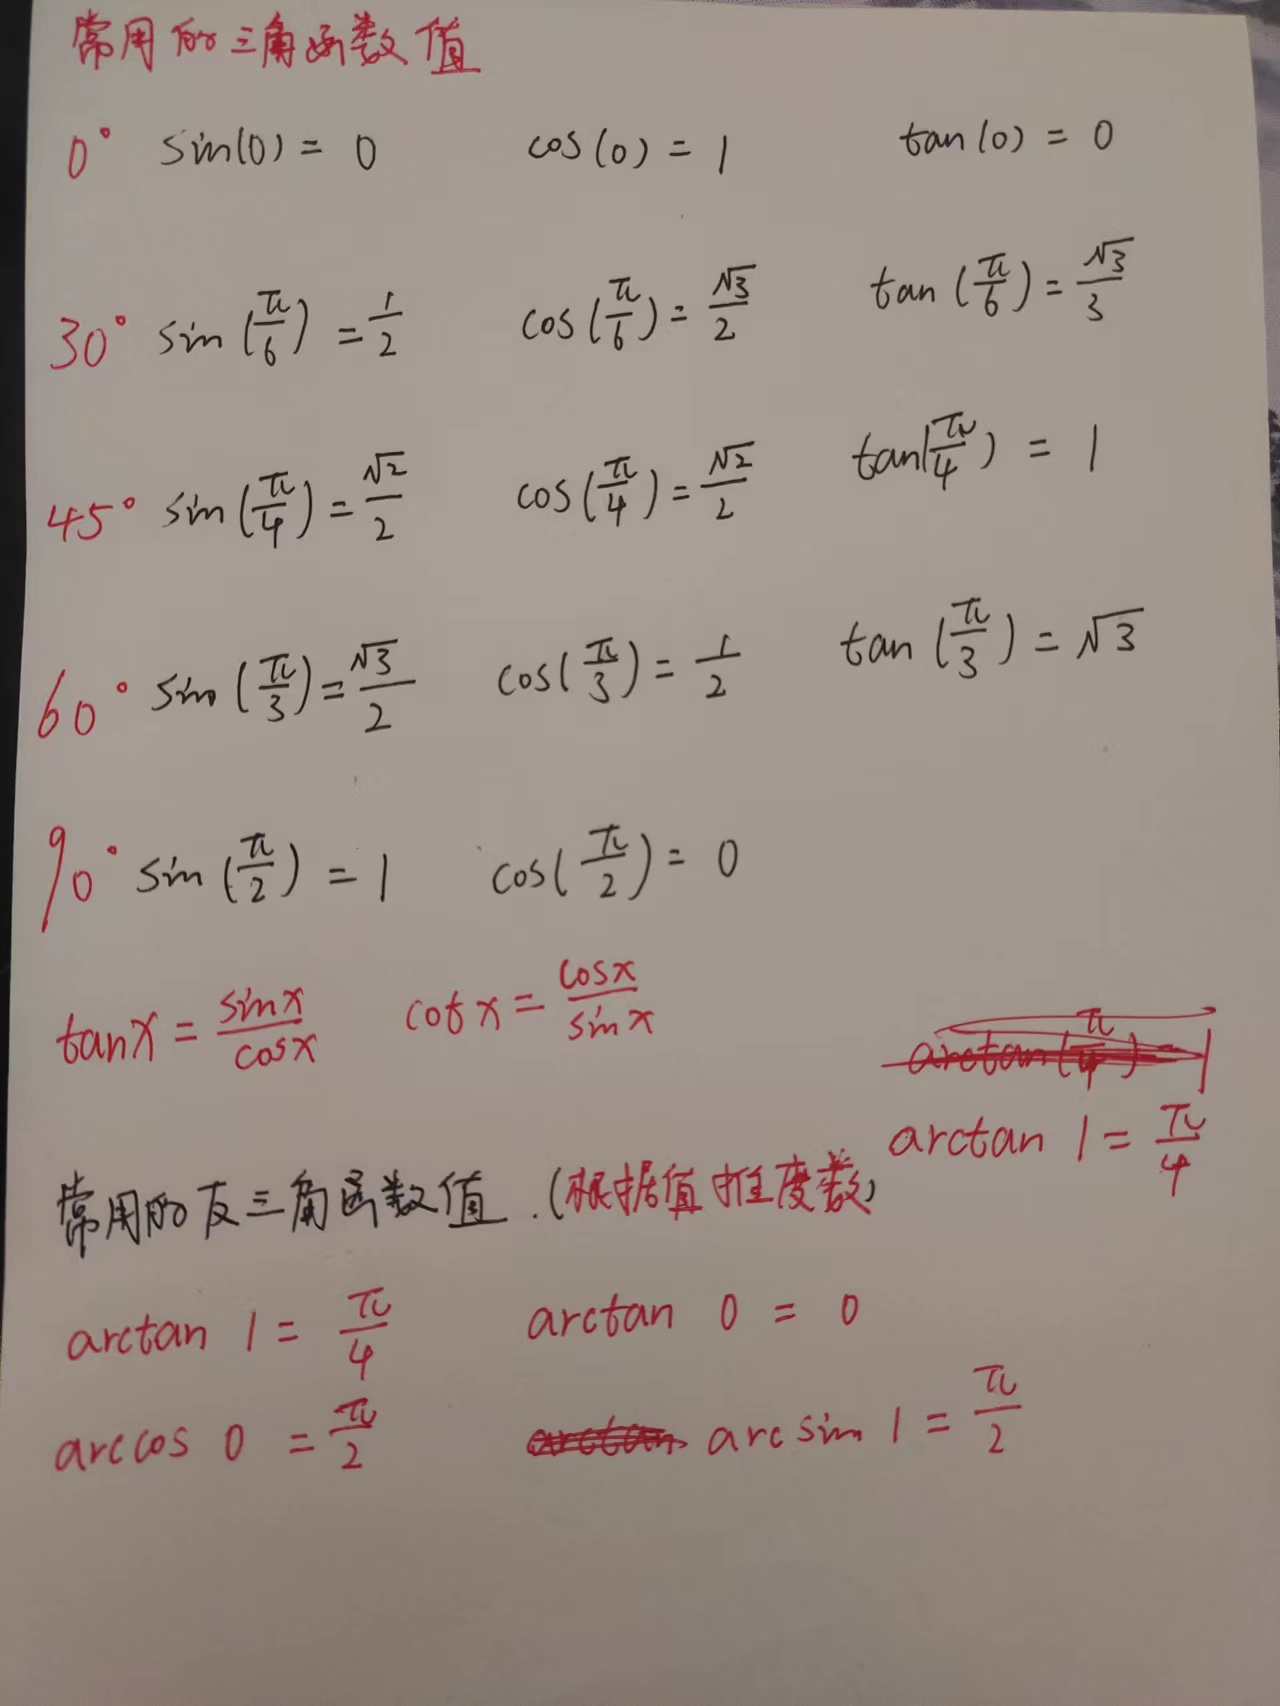 常用的三角函数值
0° sin(0) = 0 cos(0) = 1 tan(0) = 0
30° sin(π/6) = 1/2 cos(π/6) = √3/2 tan(π/6) = √3/3
45° sin(π/4) = √2/2 cos(π/4) = √2/2 tan(π/4) = 1
60° sin(π/3) = √3/2 cos(π/3) = 1/2 tan(π/3) = √3
90° sin(π/2) = 1 cos(π/2) = 0
tanx = sinx/cosx cotx = cosx/sinx
arctan(π/4) = 1
arctan 1 = π/4
常用的反三角函数值.(根据值推度数)
arctan 1 = π/4 arctan 0 = 0
arccos 0 = π/2 arctan arcsin 1 = π/2